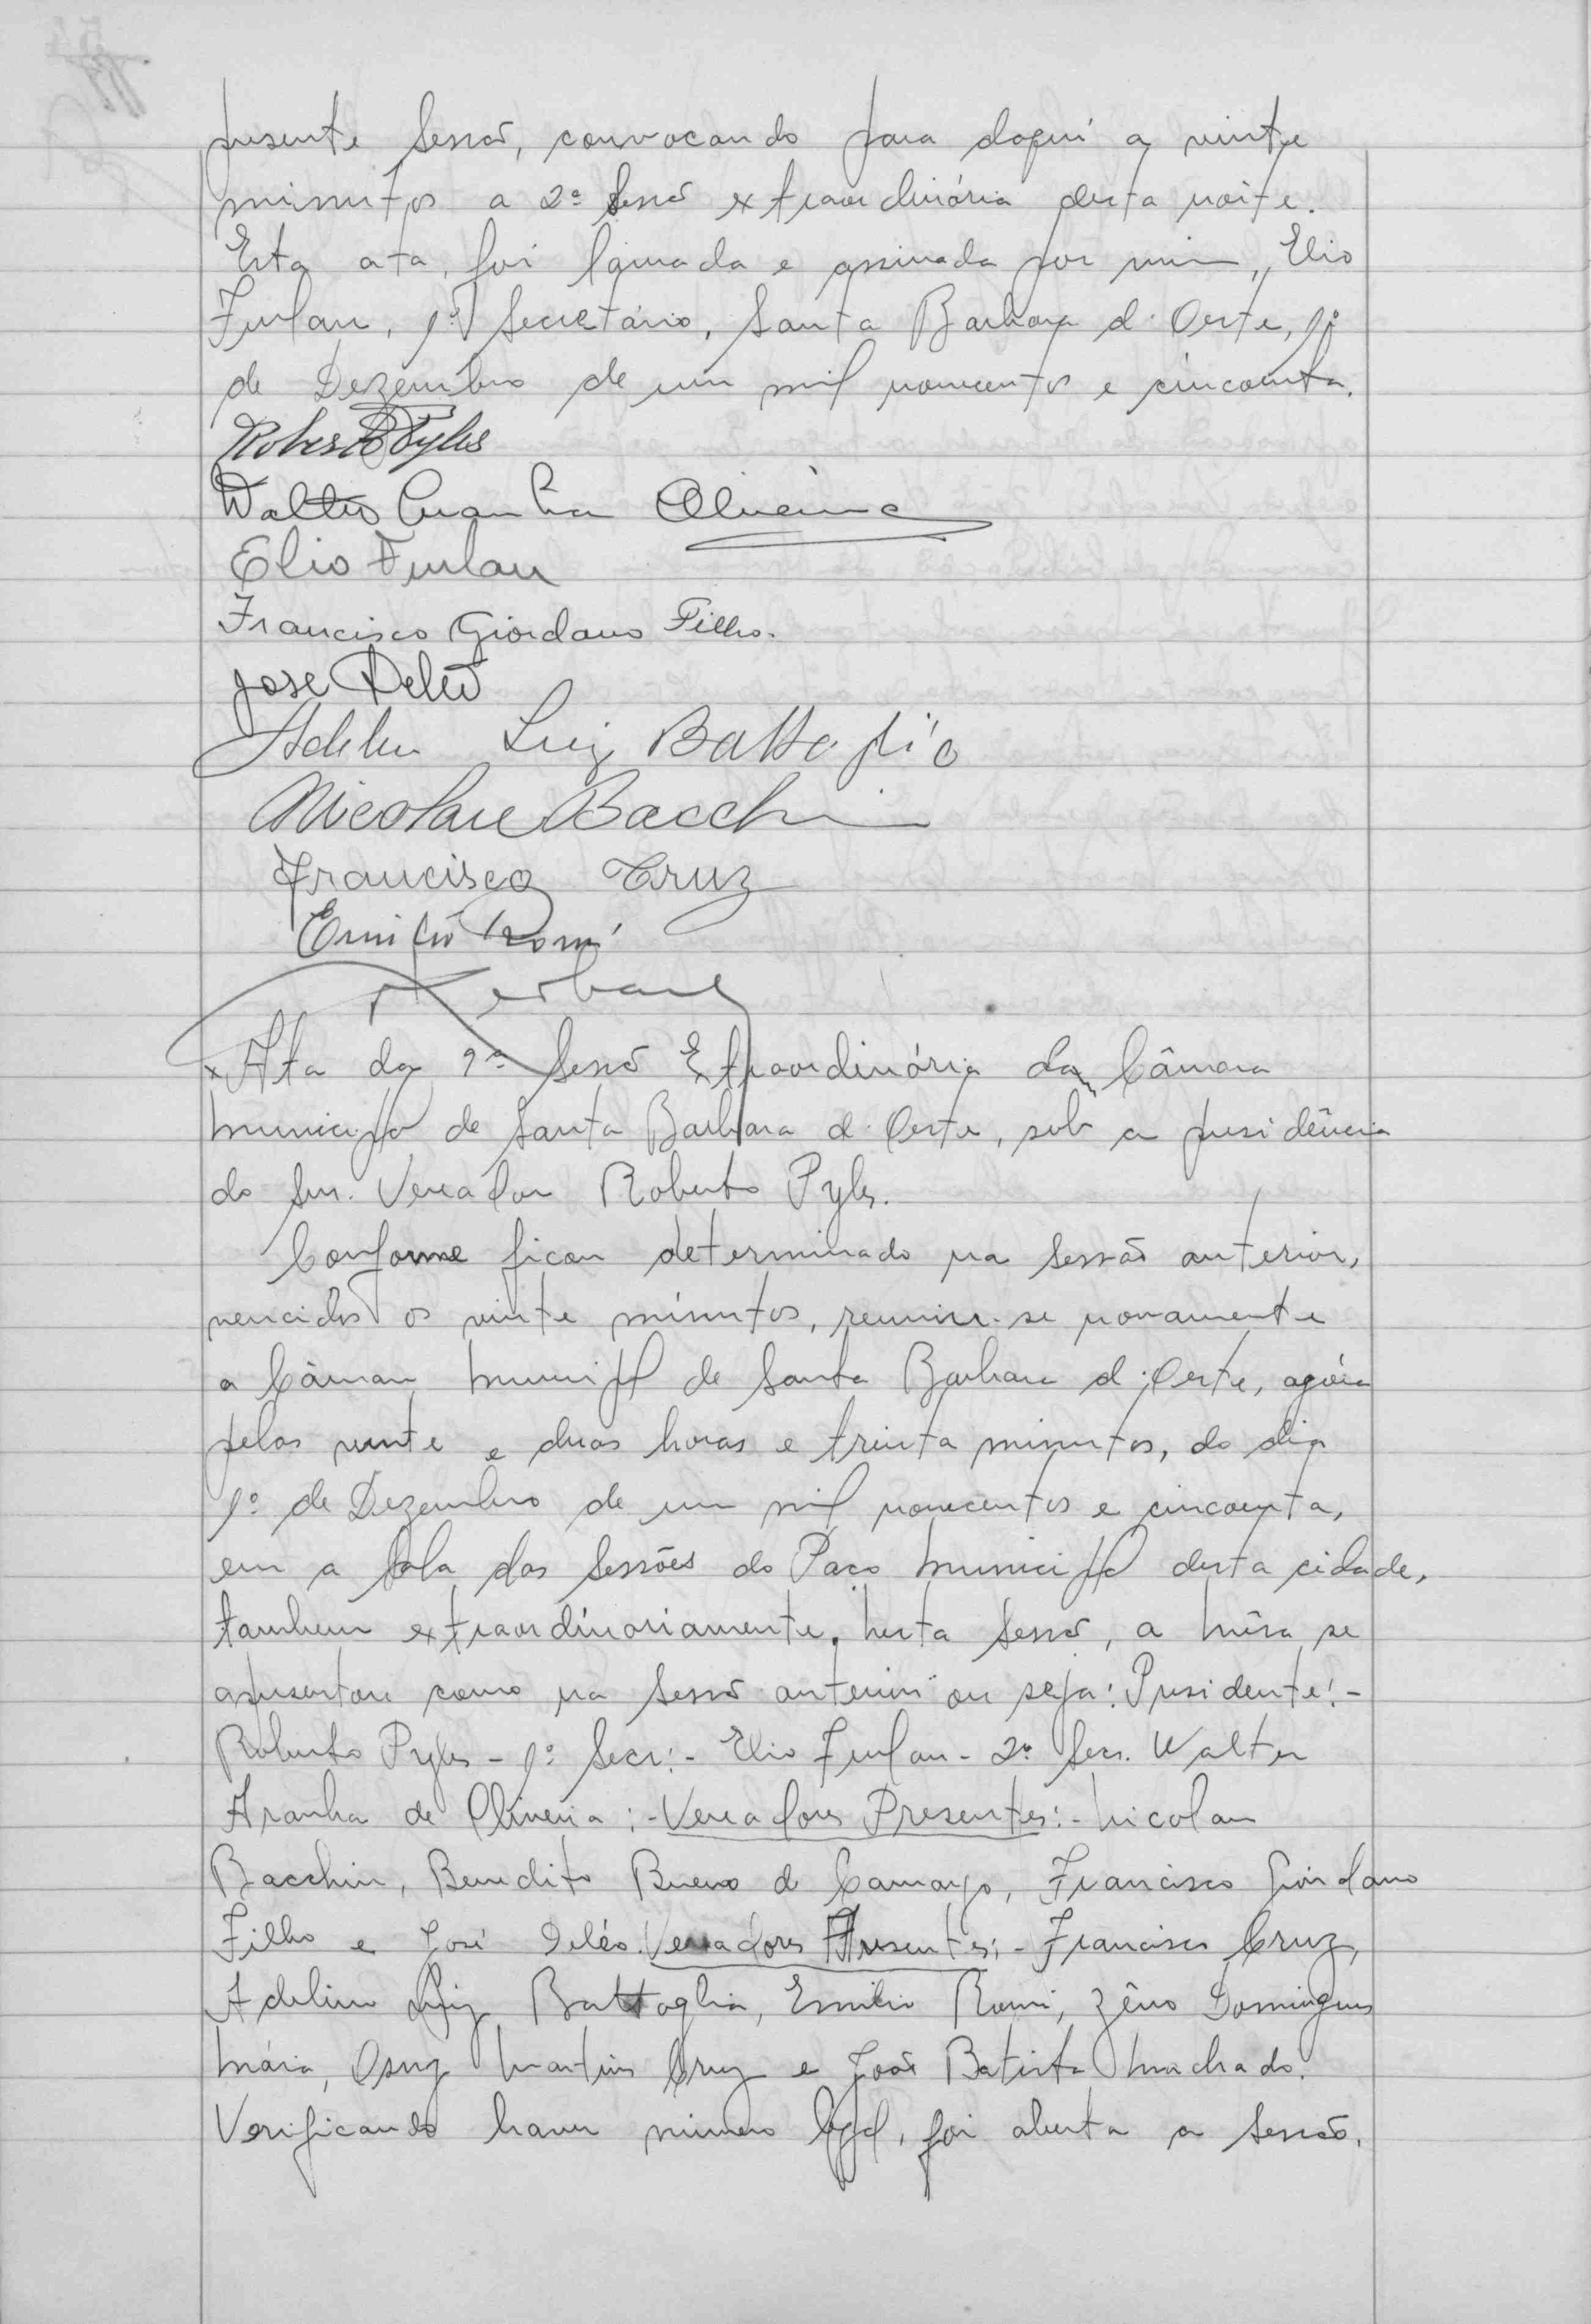 presente Sessão, convocando para daqui a vinte
minutos a 2ª Sessão extraordinária desta noite.
Esta ata, foi lavrada e assinada por mim, Elio
Furlan, 1º Secretário, Santa Barbara d'Oeste, 1º
de Dezembro de um mil novecentos e cincoenta.
Roberto Pyles
Walter Aranha Oliveira
Elio Furlan
Francisco Giordano Filho.
José Deleo
Adelin Luiz Battaglia
Nicolau Bacchin
Francisco Cruz
Emilio Romi
Ata da 9ª Sessão Extraordinária da Câmara
Municipal de Santa Barbara d'Oeste, sob a presidência
do Snr. Vereador Roberto Pyles.
Conforme ficou determinado na Sessão anterior,
vencidos os vinte minutos, reuniu-se novamente
a Câmara Municipal de Santa Barbara d'Oeste, agóra
pelas vinte e duas horas e trinta minutos, do dia
1º de Dezembro de um mil novecentos e cincoenta,
em a Sala das Sessões do Paço Municipal desta cidade,
tambem extraordinariamente. Nesta Sessão, a Mêsa se
apresentou como na Sessão anterior ou seja: Presidente:-
Roberto Pyles - 1º Secr:- Elio Furlan - 2º Secr. Walter
Aranha de Oliveira:- Vereadores Presentes:- Nicolau
Bacchin, Benedito Bueno de Camargo, Francisco Giordano
Filho e José Deléo. Vereadores Ausentes:- Francisco Cruz,
Adelino Luiz Battaglia, Emilio Romi, Zêno Domingues
Mária, Osny Martins Cruz e João Batista Machado.
Verificando haver número legal, foi aberta a Sessão.